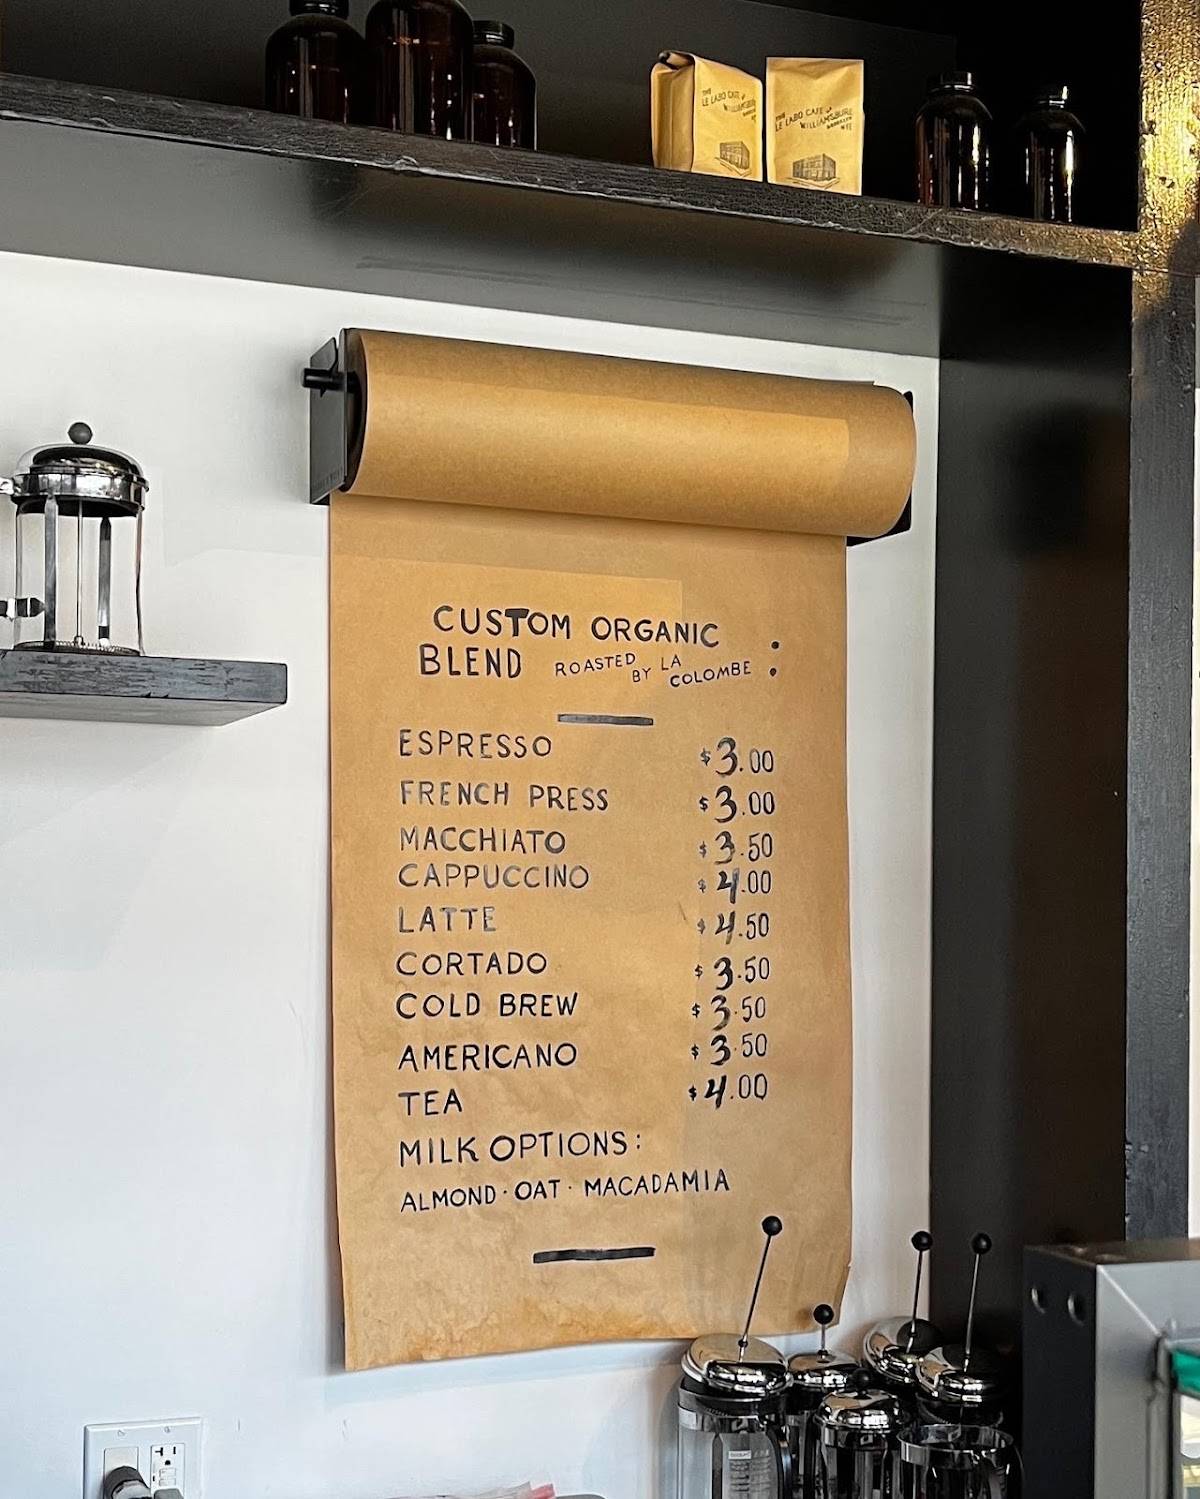 THE
LE LABO CAFE
WILLIAMSBURG
THE
LE LABO CAFE
WILLIAMSBURG
BROOKLYN
CUSTOM ORGANIC
BLEND ROASTED BY LA COLOMBE :
ESPRESSO $3.00
FRENCH PRESS $3.00
MACCHIATO $3.50
CAPPUCCINO $4.00
LATTE $4.50
CORTADO $3.50
COLD BREW $3.50
AMERICANO $3.50
TEA $4.00
MILK OPTIONS:
ALMOND · OAT · MACADAMIA